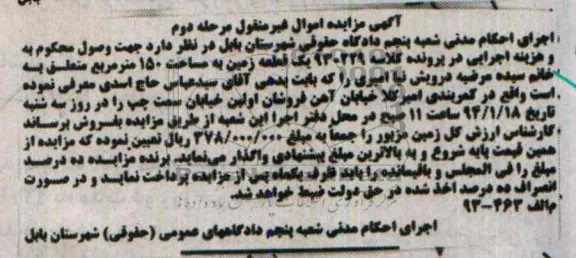 آگهی مزایده اموال غیرمنقول مرحله دوم
اجرای احکام مدنی شعبه پنجم دادگاه حقوقی شهرستان بابل در نظر دارد جهت وصول محکوم به
و هزینه اجرایی در پرونده کلاسه ۹۳۰۲۲۹ یک قطعه زمین به مساحت ۱۵۰ مترمربع متعلق به
خانم سیده مرضیه درویش نیا امیری را که بابت بدهی آقای سیدعباس حاج اسدی معرفی نموده
است واقع در کمربندی امیرکلا خیابان آهن فروشان اولین خیابان سمت چپ را در روز سه شنبه
تاریخ ۹۴/۱/۱۸ ساعت ۱۱ صبح در محل دفتر اجرا این شعبه از طریق مزایده بفروش برساند
کارشناس ارزش کل زمین مزبور را جمعا به مبلغ ۳۷۸/۰۰۰/۰۰۰ ریال تعیین نموده که مزایده از
همین قیمت پایه شروع و به بالاترین مبلغ پیشنهادی واگذار می‌نماید. برنده مزایده ده درصد
مبلغ را فی المجلس و باقیمانده را باید ظرف یکماه پس از مزایده پرداخت نماید و در صورت
انصراف ده درصد اخذ شده در حق دولت ضبط خواهد شد.
م/الف ۴۶۳-۹۳
اجرای احکام مدنی شعبه پنجم دادگاههای عمومی (حقوقی) شهرستان بابل